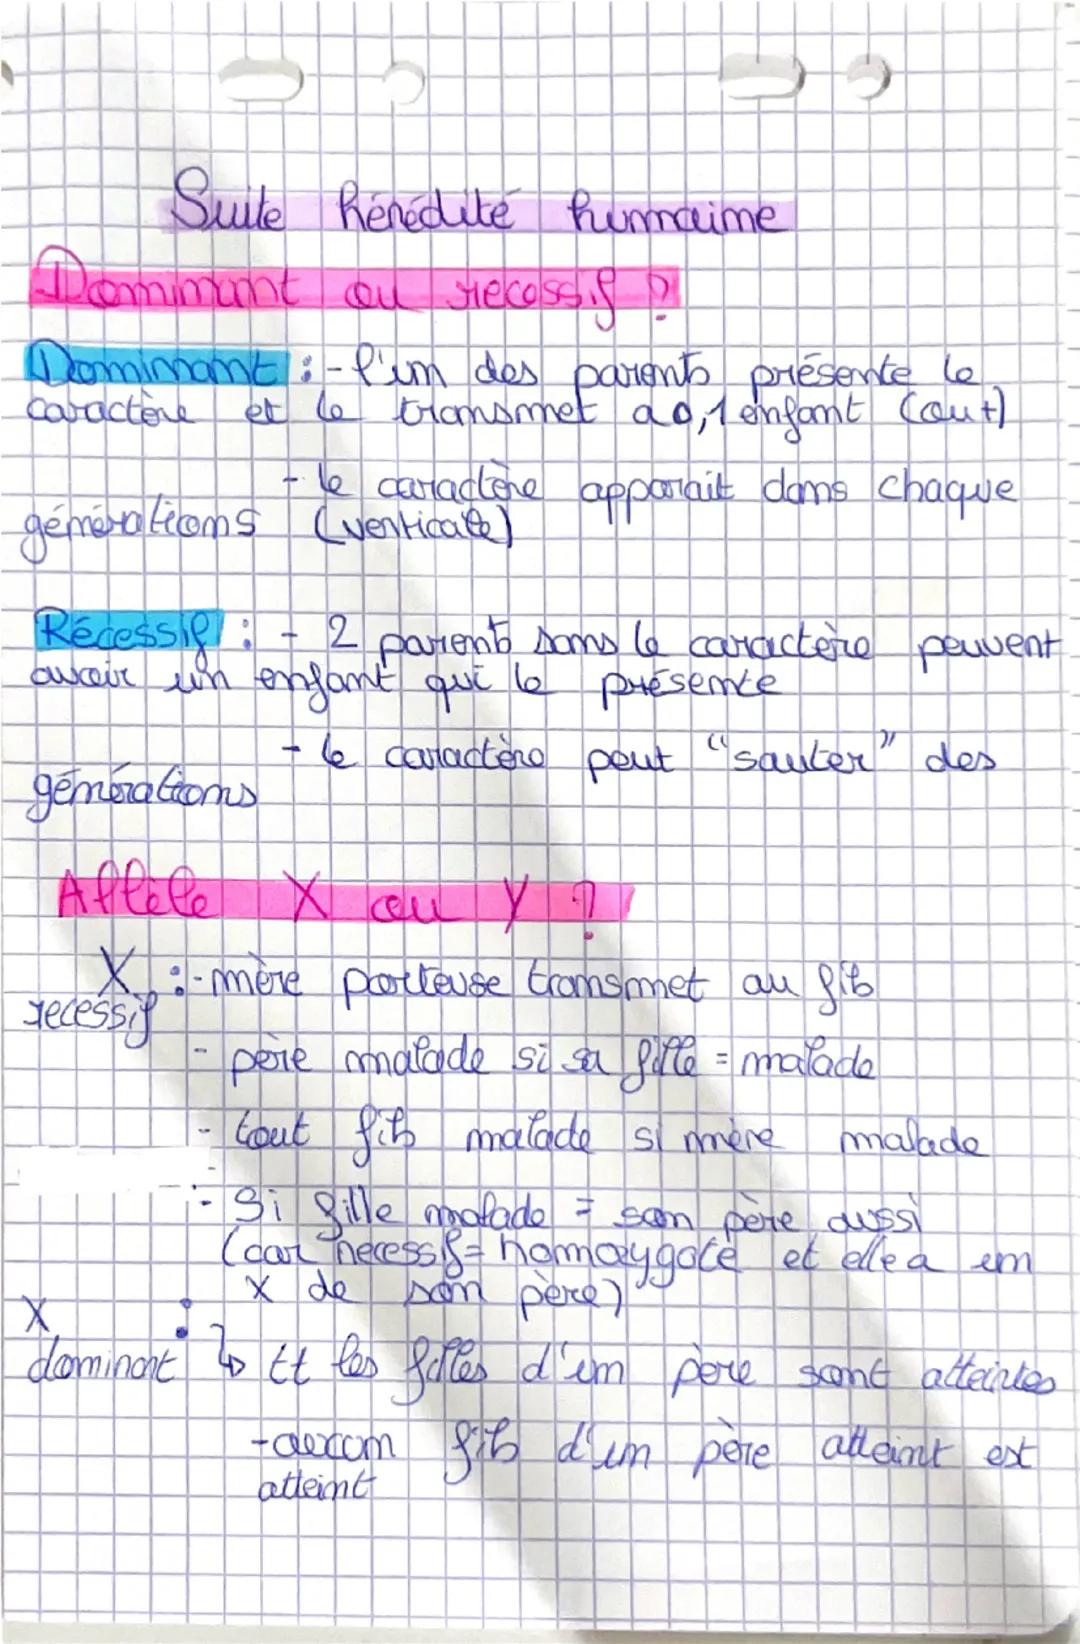 Suite hérédité humaine
Dominant ou recessif ?
Dominant : - l'un des parents présente le
caractère et le transmet a 0,1 enfant (ou +)
- le caractère apparait dans chaque
générations (verticale)
Récessif : - 2 parents sans le caractère peuvent
avoir un enfant qui le présente
- le caractère peut "sauter" des
générations
Allèle X ou Y ?
X : - mère porteuse transmet au fils
recessif
- père malade si sa fille = malade
- tout fils malade si mère malade
- Si fille malade = son père aussi
(car recessif = homozygote et elle a un
X de son père)
X :
dominant ↳ tt les filles d'un père sont atteintes
- aucun fils d'un père atteint est
atteint